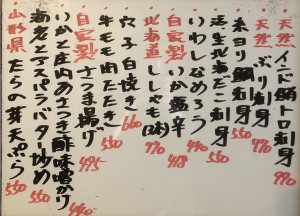 天然 インド鮪トロ刺身
天然 ぶり刺身 770
糸ヨリ鯛刺身 550
活生北海だこ刺身
いわしなめろう 550
自家製 いか塩辛 418
北海道 ししゃも(2本) 770
穴子白焼き 660
牛もも肉たたき 550
自家製 さつま揚げ 495
いかと庄内あさつき酢味噌かけ 440
海老とアスパラバター炒め 550
山形県 たらの芽天ぷら 550
990